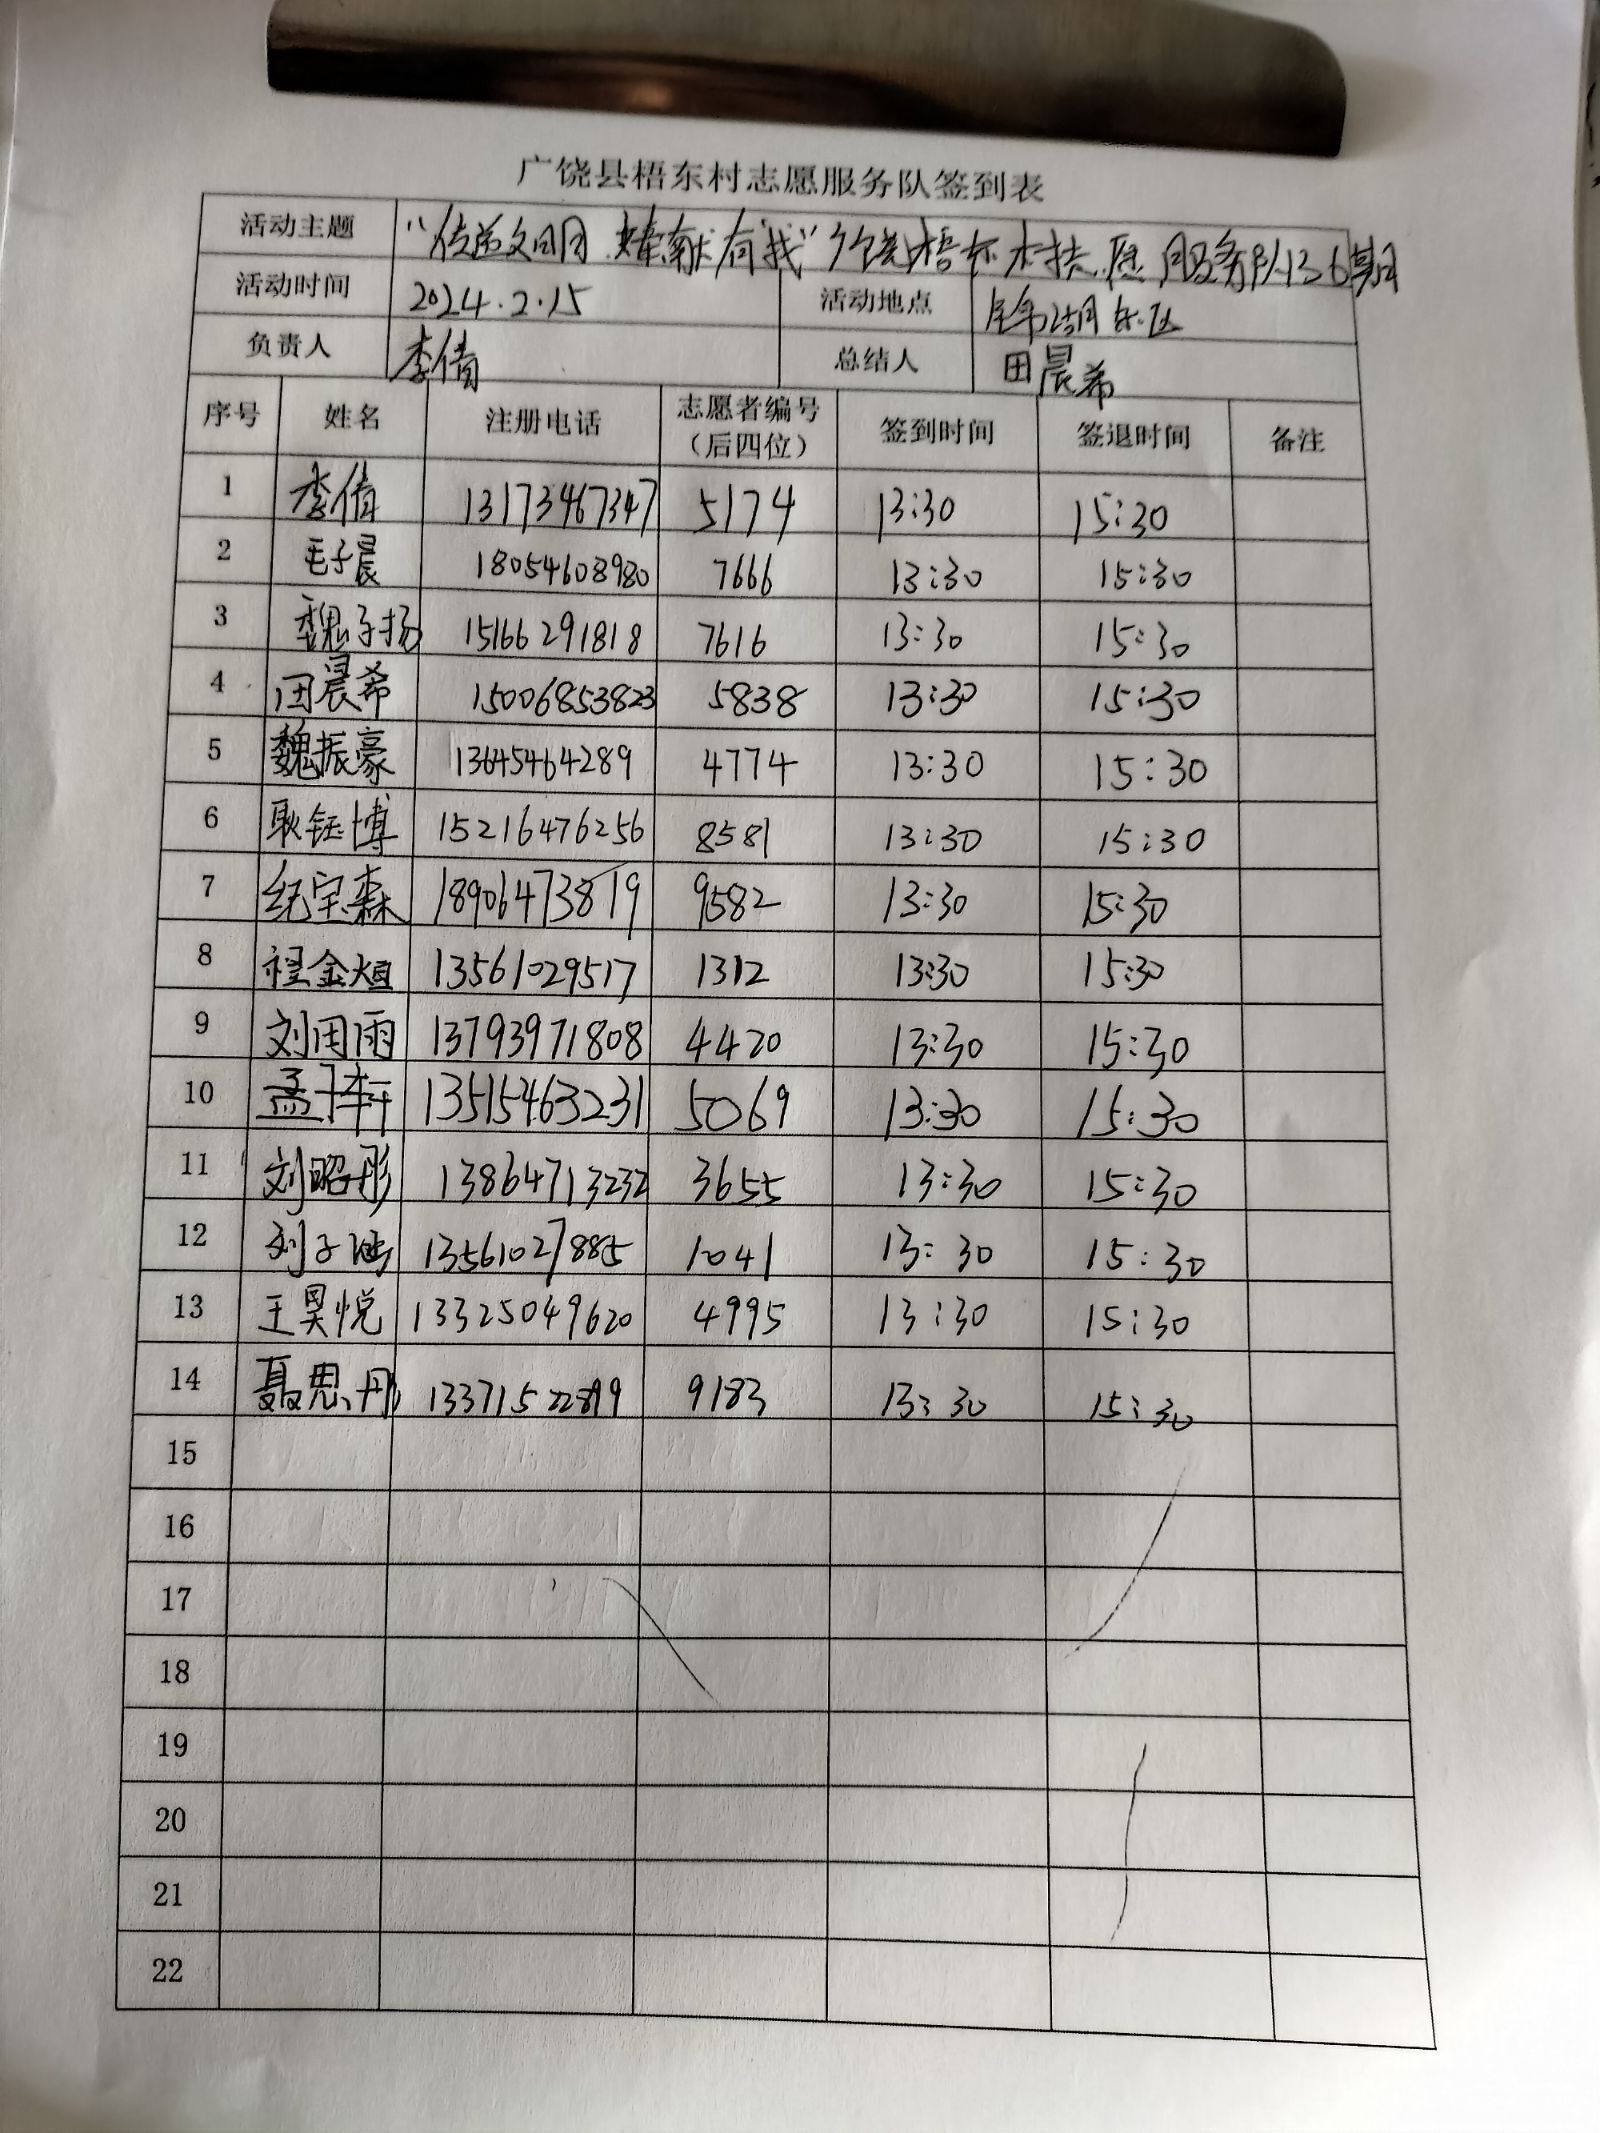 广饶县梧东村志愿服务队签到表
活动主题 “传递文明 奉献有我”广饶县梧东村志愿服务队136期
活动时间 2024.2.15 活动地点
负责人 李倩 总结人 田晨希
序号 姓名 注册电话 志愿者编号（后四位） 签到时间 签退时间 备注
1 李倩 13173467347 5174 13:30 15:30
2 毛子晨 18054608980 7666 13:30 15:30
3 魏子扬 15166291818 7616 13:30 15:30
4 田晨希 15006853823 5838 13:30 15:30
5 魏振豪 13645464289 4774 13:30 15:30
6 耿钰博 15216476256 8581 13:30 15:30
7 纪宝森 18906473819 9582 13:30 15:30
8 程金烜 13561029517 1312 13:30 15:30
9 刘雨 13793971808 4420 13:30 15:30
10 孟 轩 13515463231 5069 13:30 15:30
11 刘昭彤 13864713232 3655 13:30 15:30
12 刘子涵 13561027885 1041 13:30 15:30
13 王昊悦 13325049620 4995 13:30 15:30
14 聂思彤 13371522899 9183 13:30 15:30
15
16
17
18
19
20
21
22